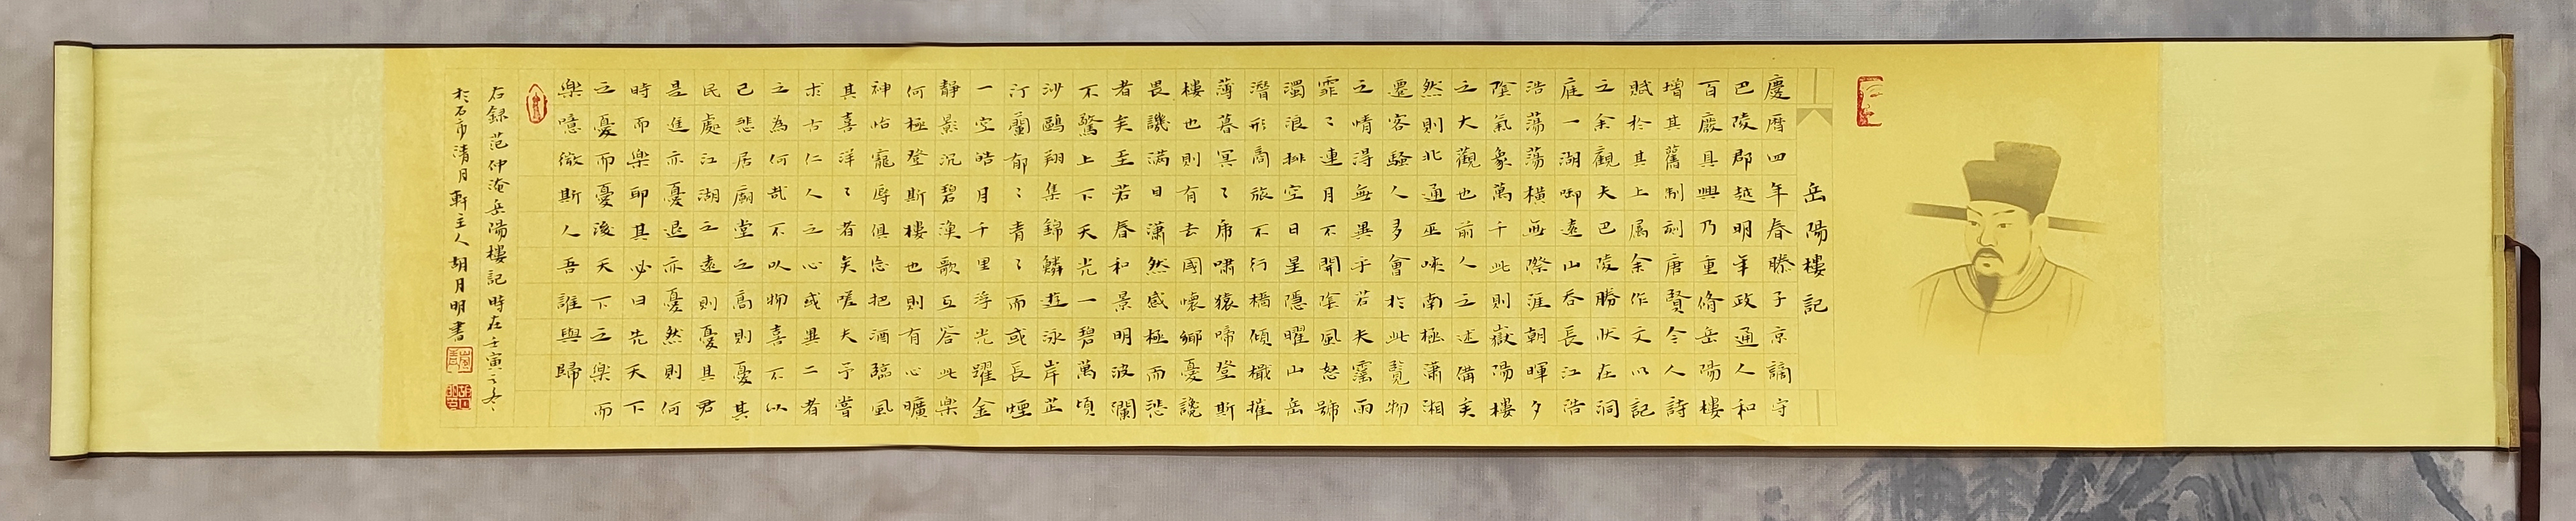 岳陽樓記
慶曆四年春滕子京謫守
巴陵郡越明年政通人和
百廢具興乃重脩岳陽樓
增其舊制刻唐賢今人詩
賦於其上屬余作文以記
之余觀夫巴陵勝狀在洞
庭一湖啣遠山吞長江浩
浩蕩蕩橫無際涯朝暉夕
陰氣象萬千此則嶽陽樓
之大觀也前人之述備矣
然則北通巫峽南極瀟湘
遷客騷人多會於此覽物
之情得無異乎若夫霪雨
霏〻連月不開陰風怒號
濁浪排空日星隱曜山岳
潛形商旅不行檣傾檝摧
薄暮冥〻虎嘯猿啼登斯
樓也則有去國懷鄉憂讒
畏譏滿目瀟然感極而悲
者矣至若春和景明波瀾
不驚上下天光一碧萬頃
沙鷗翔集錦鱗遊泳岸芷
汀蘭郁〻青〻而或長煙
一空皓月千里浮光躍金
靜景沉碧漁歌互答此樂
何極登斯樓也則有心曠
神怡寵辱俱忘把酒臨風
其喜洋〻者矣嗟夫予嘗
求古仁人之心或異二者
之為何哉不以物喜不以
己悲居廟堂之高則憂其
民處江湖之遠則憂其君
是進亦憂退亦憂然則何
時而樂耶其必曰先天下
之憂而憂後天下之樂而
樂噫微斯人吾誰與歸
右録范仲淹岳陽樓記時在壬寅之冬
於石市清月軒主人胡月明書